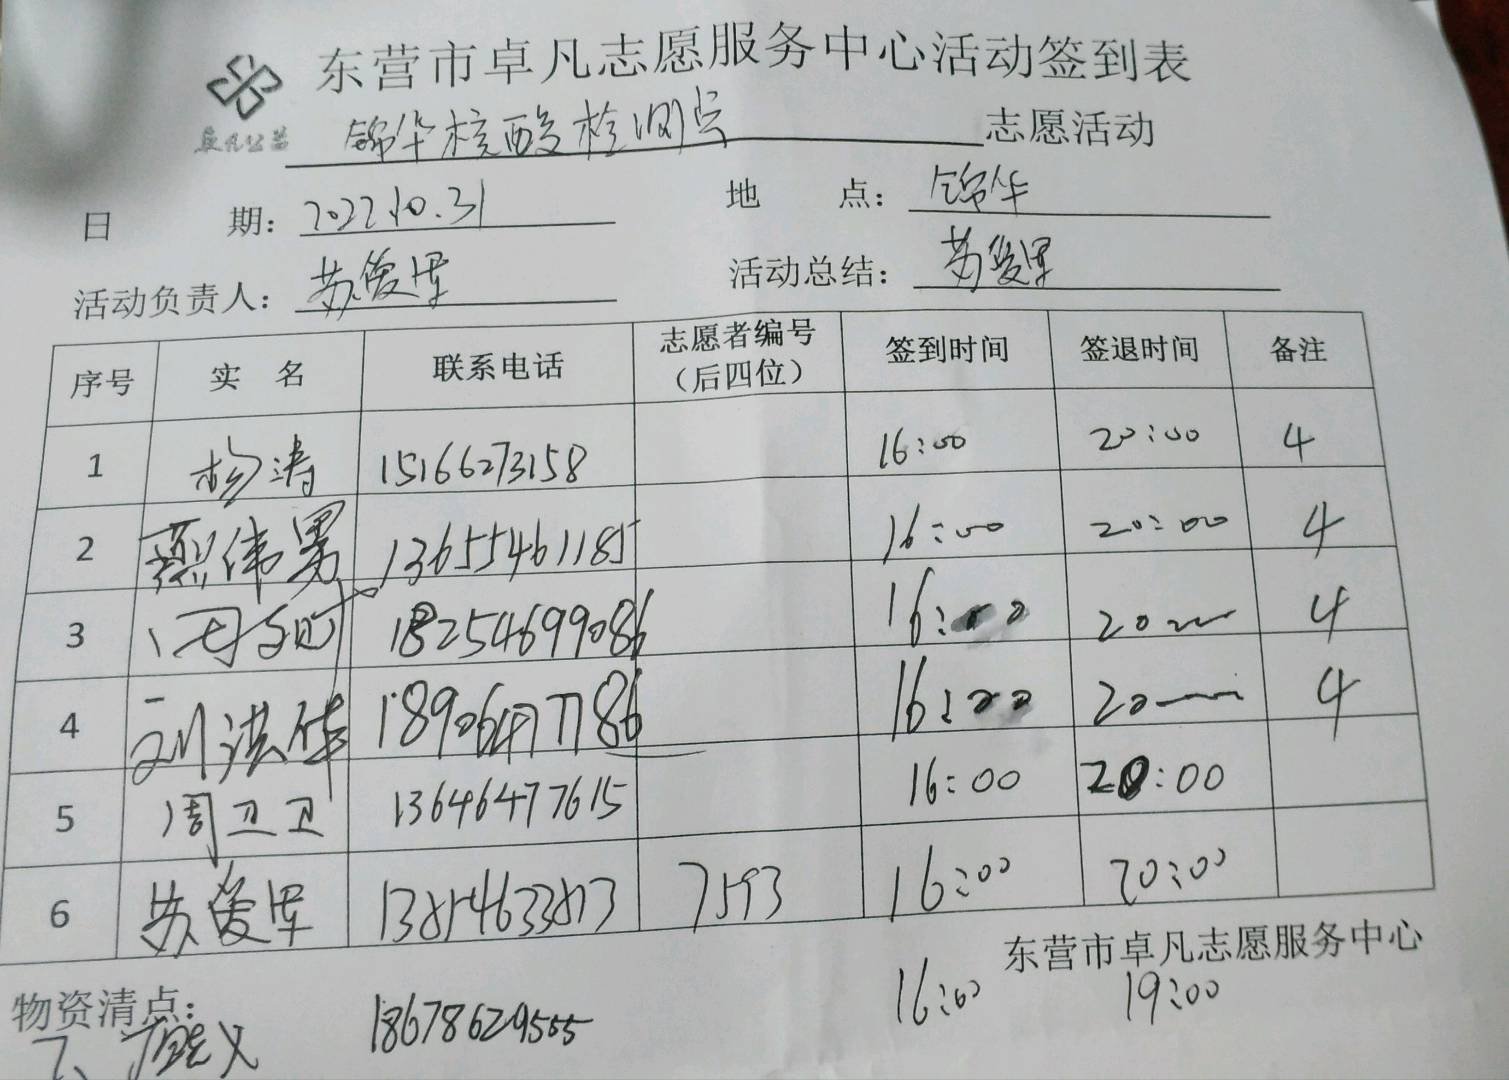 东营市卓凡志愿服务中心活动签到表
卓凡公益
锦华核酸检测点 志愿活动
日 期：2022.10.31 地 点：锦华
活动负责人：苏俊军 活动总结：苏俊军
序号 实 名 联系电话 志愿者编号（后四位） 签到时间 签退时间 备注
1 杨涛 15166273158 16:00 20:00 4
2 蔡伟男 13655461185 16:00 20:00 4
3 18254699086 16:00 20 4
4 刘洪华 18906477186 16:00 20 4
5 周卫卫 13646477615 16:00 20:00
6 苏俊军 13854633873 7593 16:00 20:00
东营市卓凡志愿服务中心
物资清点：
7、 18678629555 16:00 19:00